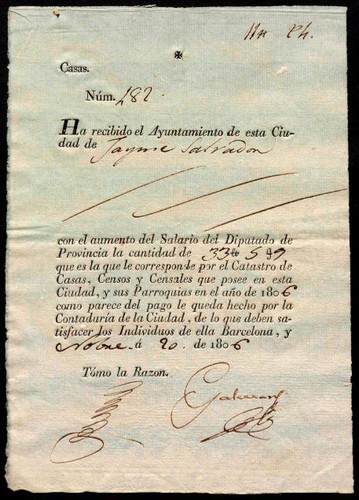 Casas.
Núm. 482
Ha recibido el Ayuntamiento de esta Ciu-
dad de Jayme Salvador
con el aumento del Salario del Diputado de
Provincia la cantidad de 33 lb 5 s 9
que es la que le corresponde por el Catastro de
Casas, Censos y Censales que posee en esta
Ciudad, y sus Parroquias en el año de 1806
como parece del pago le queda hecho por la
Contaduría de la Ciudad, de lo que deben sa-
tisfacer los Individuos de ella Barcelona, y
Nobre. á 20. de 1806
Tómo la Razon.